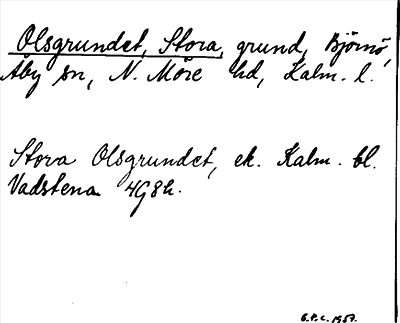 Olsgrundet, Stora, grund, Björnö,
Åby sn, N. Möre hd, Kalm. l.
Stora Olsgrundet, ek. Kalm. bl.
Vadstena 4G8h.
G.P.C. 1957.